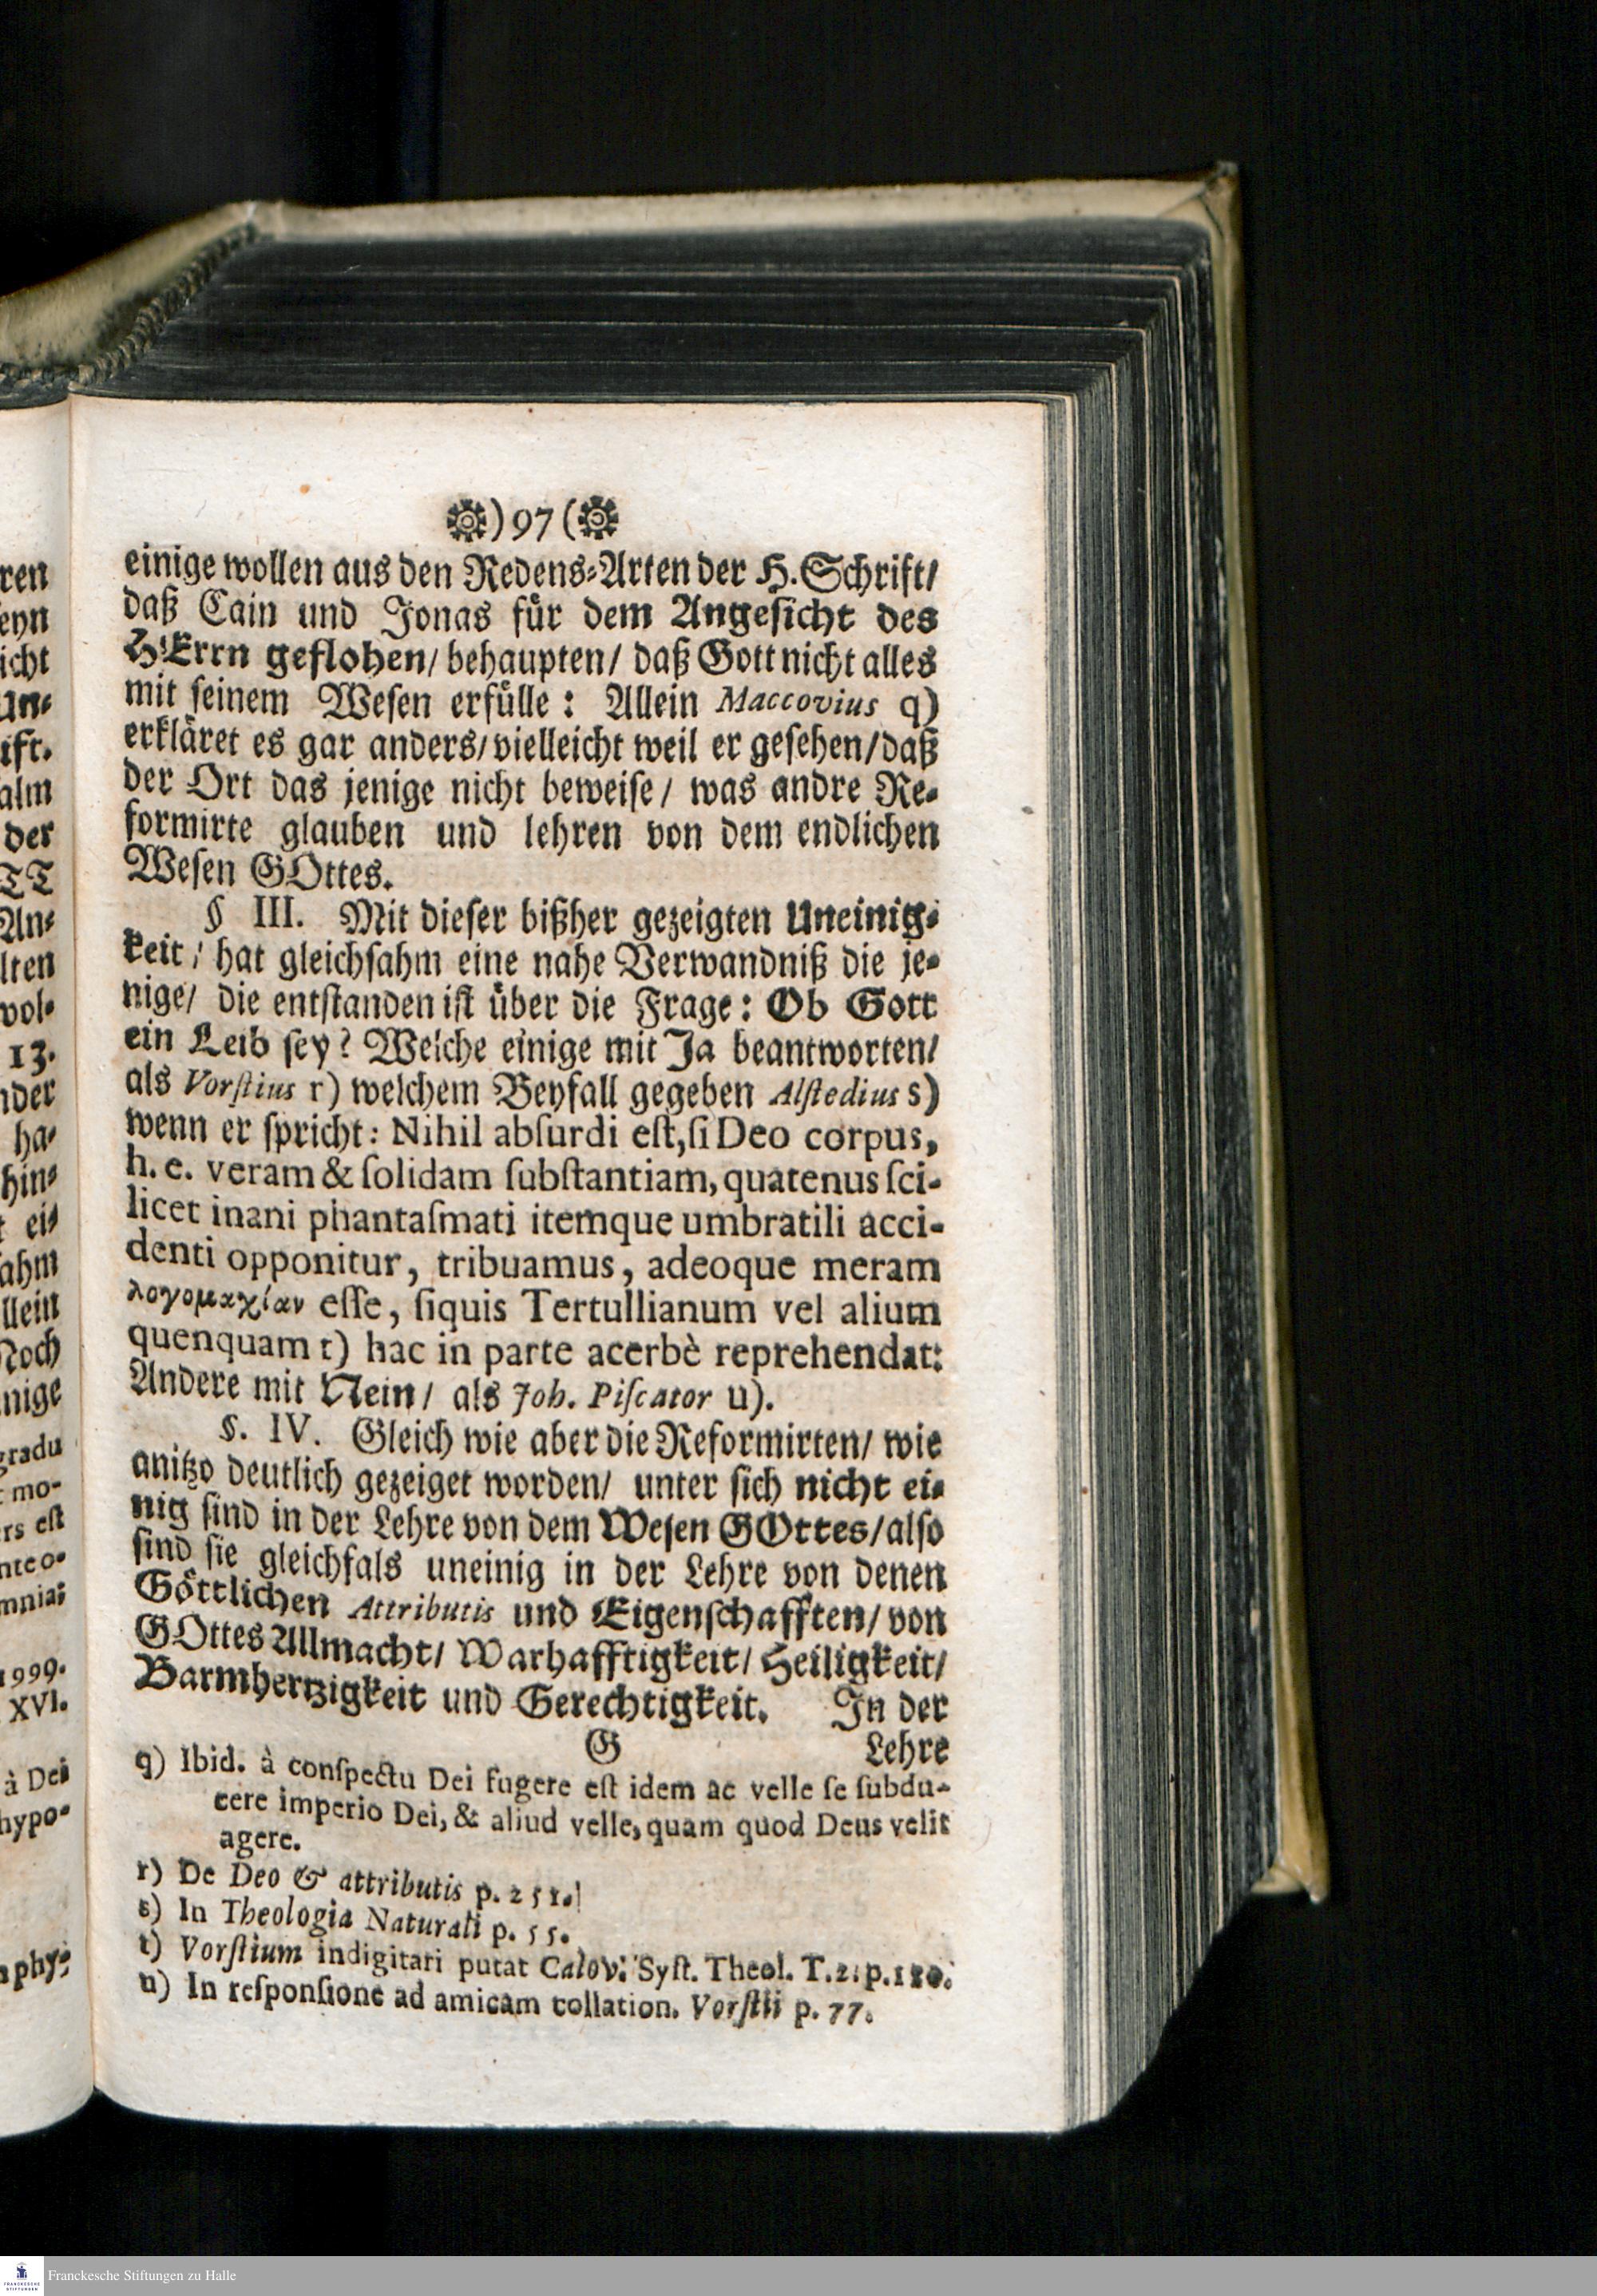 ) 97 (
einige wollen aus den Redens-Arten der H. Schrift/
daß Cain und Jonas für dem Angesicht des
HErrn geflohen/ behaupten/ daß Gott nicht alles
mit seinem Wesen erfülle: Allein Maccovius q)
erkläret es gar anders/ vielleicht weil er gesehen/ daß
der Ort das jenige nicht beweise/ was andre Re-
formirte glauben und lehren von dem endlichen
Wesen GOttes.
§ III. Mit dieser bißher gezeigten Uneinig-
keit/ hat gleichsahm eine nahe Verwandniß die je-
nige/ die entstanden ist über die Frage: Ob Gott
ein Leib sey? Welche einige mit Ja beantworten/
als Vorstius r) welchem Beyfall gegeben Alstedius s)
wenn er spricht: Nihil absurdi est, si Deo corpus,
h. e. veram & solidam substantiam, quatenus sci-
licet inani phantasmati itemque umbratili acci-
denti opponitur, tribuamus, adeoque meram
λογομαχίαν esse, siquis Tertullianum vel alium
quenquam t) hac in parte acerbè reprehendat:
Andere mit Nein/ als Joh. Piscator u).
§. IV. Gleich wie aber die Reformirten/ wie
anitzo deutlich gezeiget worden/ unter sich nicht ei-
nig sind in der Lehre von dem Wesen GOttes/ also
sind sie gleichfals uneinig in der Lehre von denen
Göttlichen Attributis und Eigenschafften/ von
GOttes Allmacht/ Warhafftigkeit/ Heiligkeit/
Barmhertzigkeit und Gerechtigkeit. In der
G Lehre
q) Ibid. à conspectu Dei fugere est idem ac velle se subdu-
cere imperio Dei, & aliud velle, quam quod Deus velit
agere.
r) De Deo & attributis p. 251.
s) In Theologia Naturali p. 55.
t) Vorstium indigitari putat Calov. Syst. Theol. T. 2. p.
u) In responsione ad amicam collation. Vorstii p. 77.
ren
eyn
icht
Un-
ift.
alm
der
TT
An-
lten
vol-
13.
nder
ha-
hin-
t ei-
ahm
llein
Noch
nige
gradu
mo-
rs est
nte o-
mnia;
1999.
XVI.
à Dei
hypo-
aphy-
Franckesche Stiftungen zu Halle
FRANCKESCHE
STIFTUNGEN